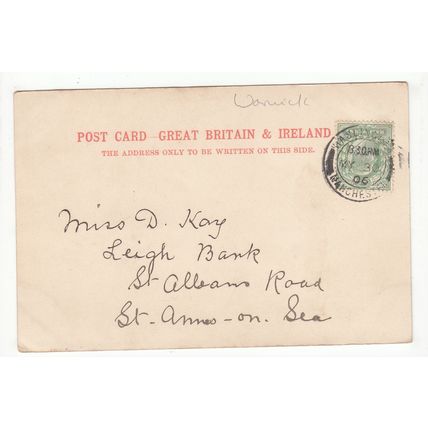 Warwick
POST CARD—GREAT BRITAIN & IRELAND.
THE ADDRESS ONLY TO BE WRITTEN ON THIS SIDE.
8.30PM
MY 3
06
MANCHEST
Miss D. Kay
Leigh Bank
St Albans Road
St-Annes-on-Sea